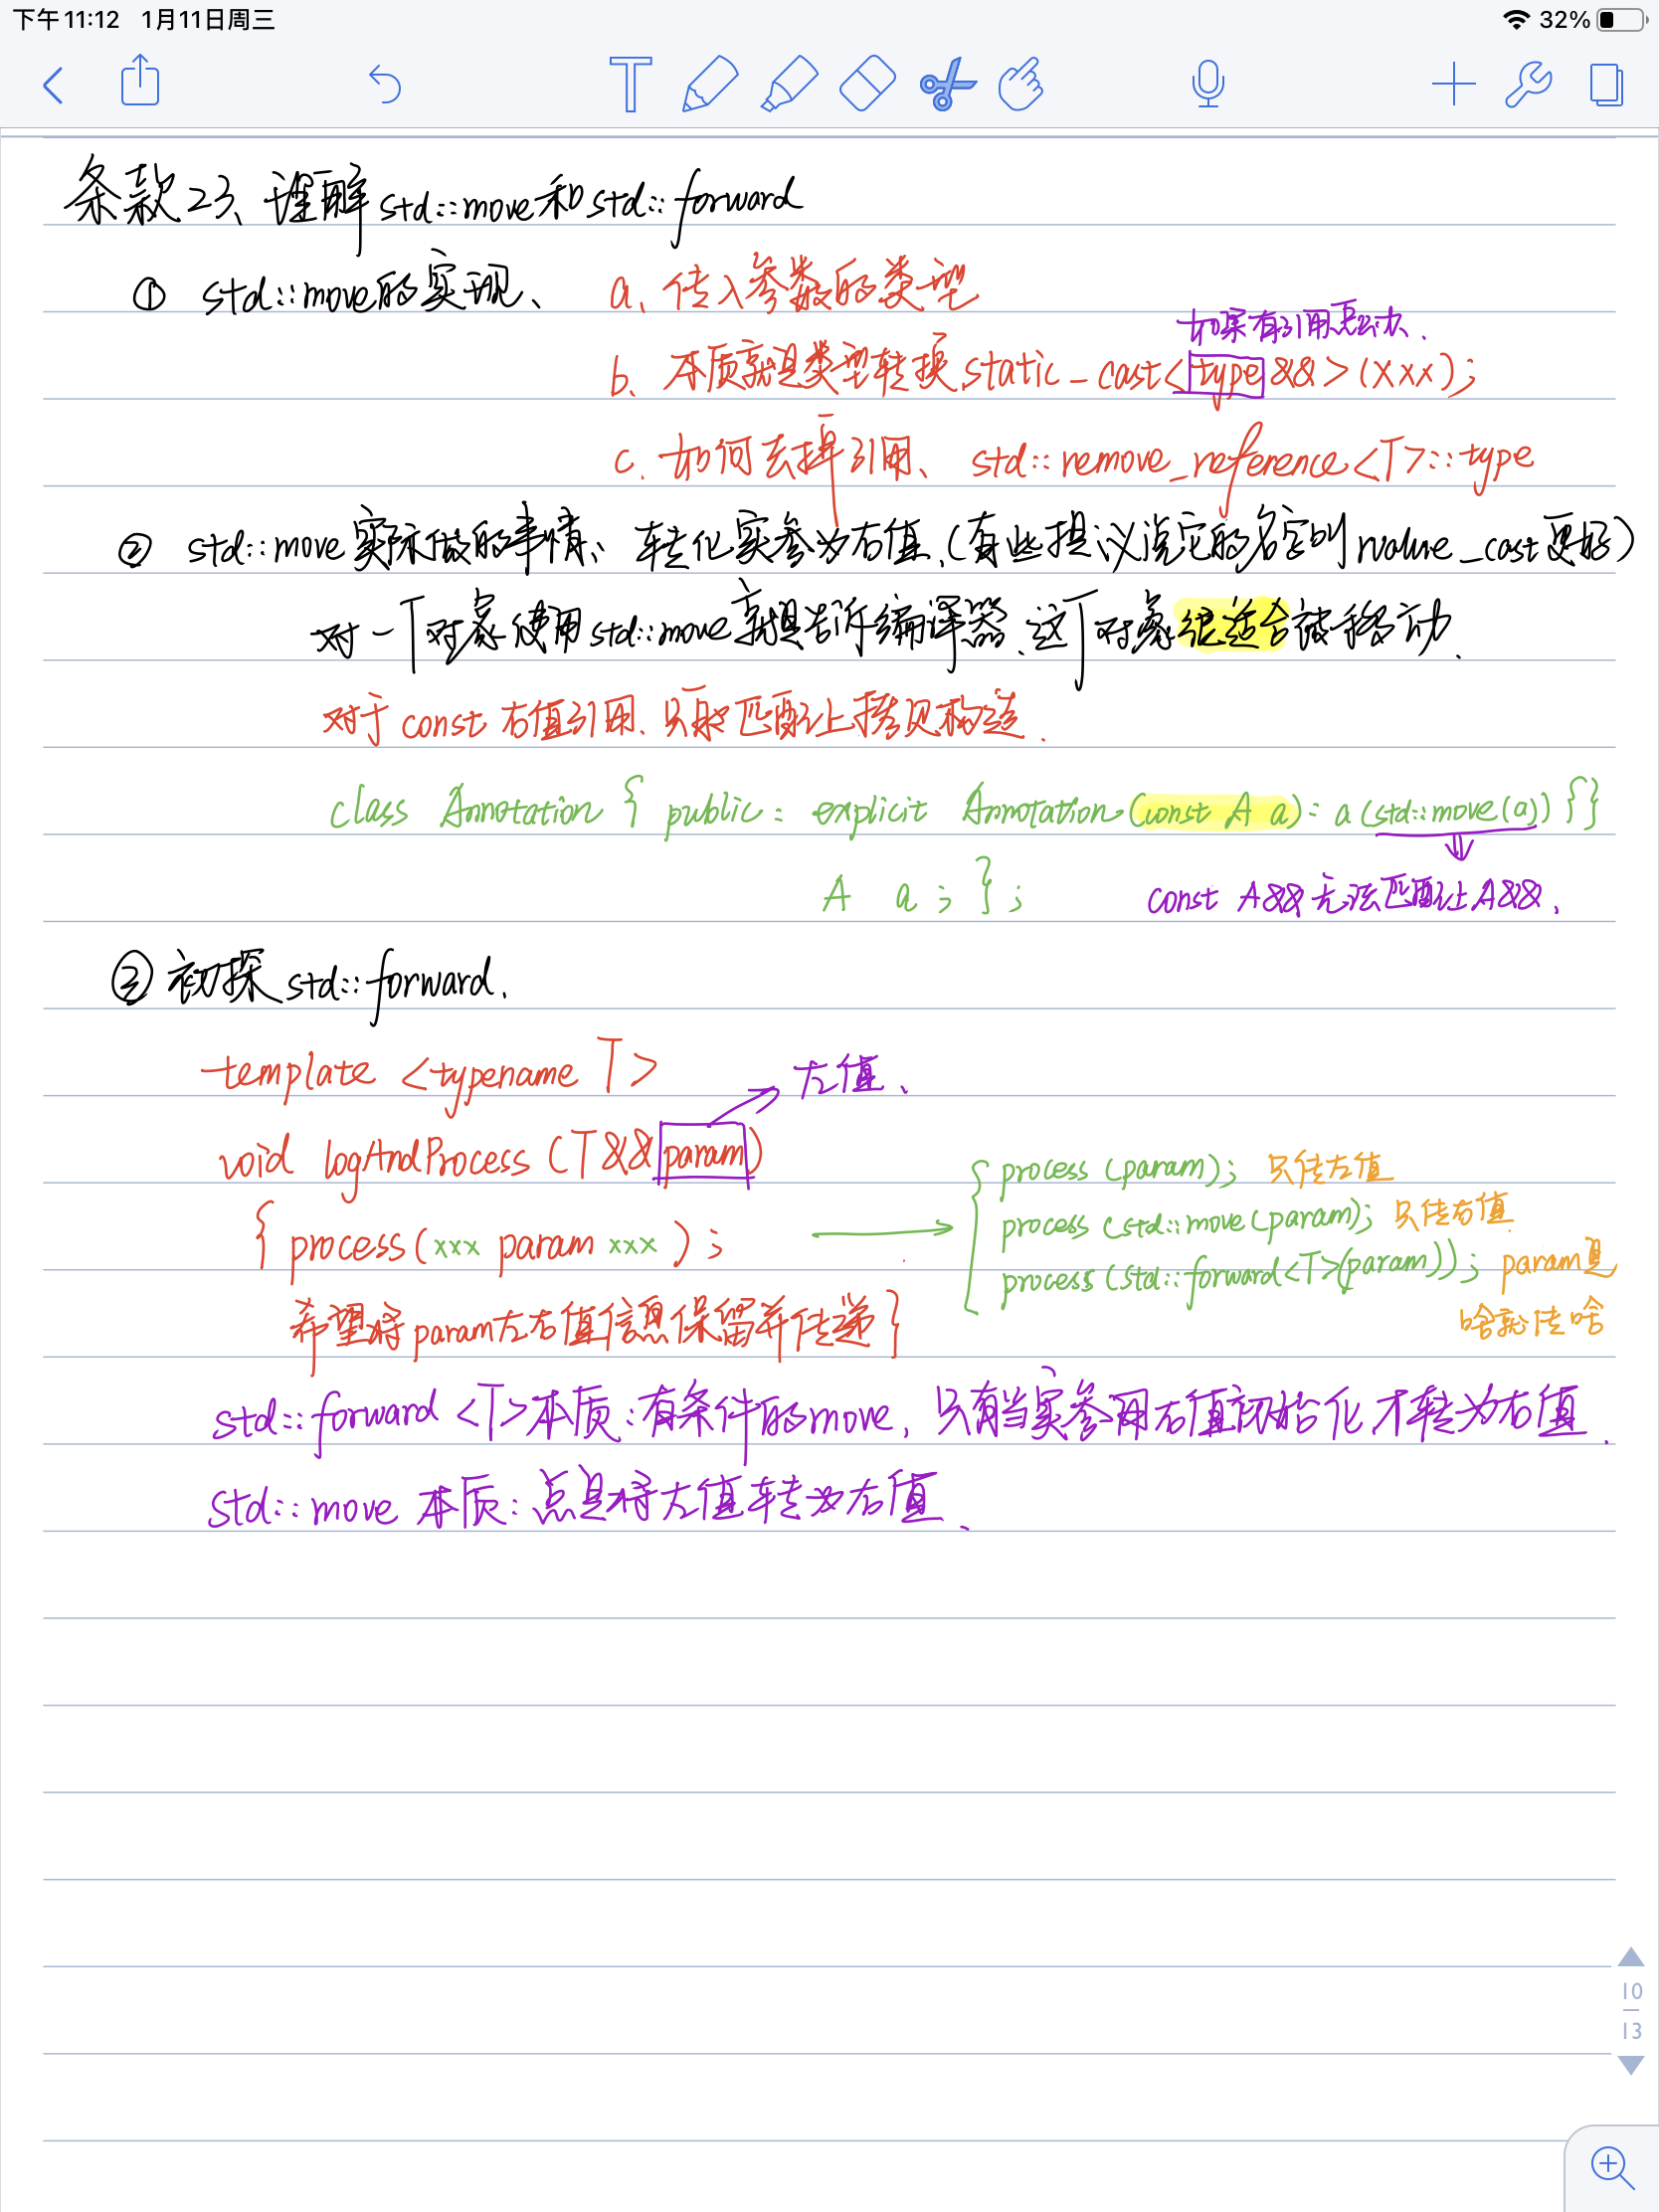 下午11:12 1月11日周三
32%
条款23、理解std::move和std::forward
① std::move的实现、 a、传入参数的类型
如果有引用怎么办、
b、本质就是类型转换 static_cast<type&&>(xxx);
c. 如何去掉引用、 std::remove_reference<T>::type
② std::move实际做的事情、转化实参为右值、(有些提议说它的名字叫rvalue_cast更好)
对一个对象使用std::move就是告诉编译器、这个对象很适合被移动、
对于const右值引用、只能匹配上拷贝构造、
class Annotation { public: explicit Annotation(const A a): a(std::move(a)) {}
A a; };
const A&& 无法匹配上A&&、
③ 初探std::forward.
template <typename T>
左值、
void logAndProcess (T&& param)
{ process(xxx param xxx);
process (param); 只传左值
process (std::move(param); 只传右值
process (std::forward<T>(param)); param是
啥就传啥
希望将param左右值信息保留并传递}
std::forward <T>本质:有条件的move, 只有当实参用右值初始化才转为右值.
std::move 本质: 总是将左值转为右值、
10
13